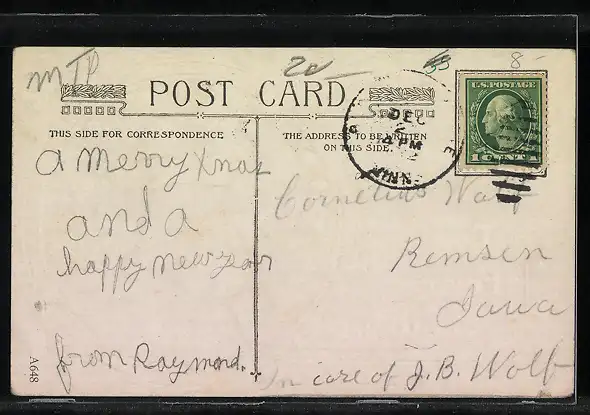 MTP
20
8-
POST CARD
U.S. POSTAGE
1 CENT 1
DEC
2
4 PM
MINN
THIS SIDE FOR CORRESPONDENCE
THE ADDRESS TO BE WRITTEN
ON THIS SIDE.
a merry xmas
and a
happy new year
from Raymond.
Cornelius Wolf
Remsen
Iowa
In care of J.B. Wolf
A648